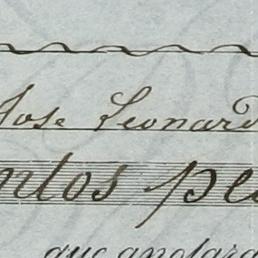 Jose Leonard
ntos pe
que anotara